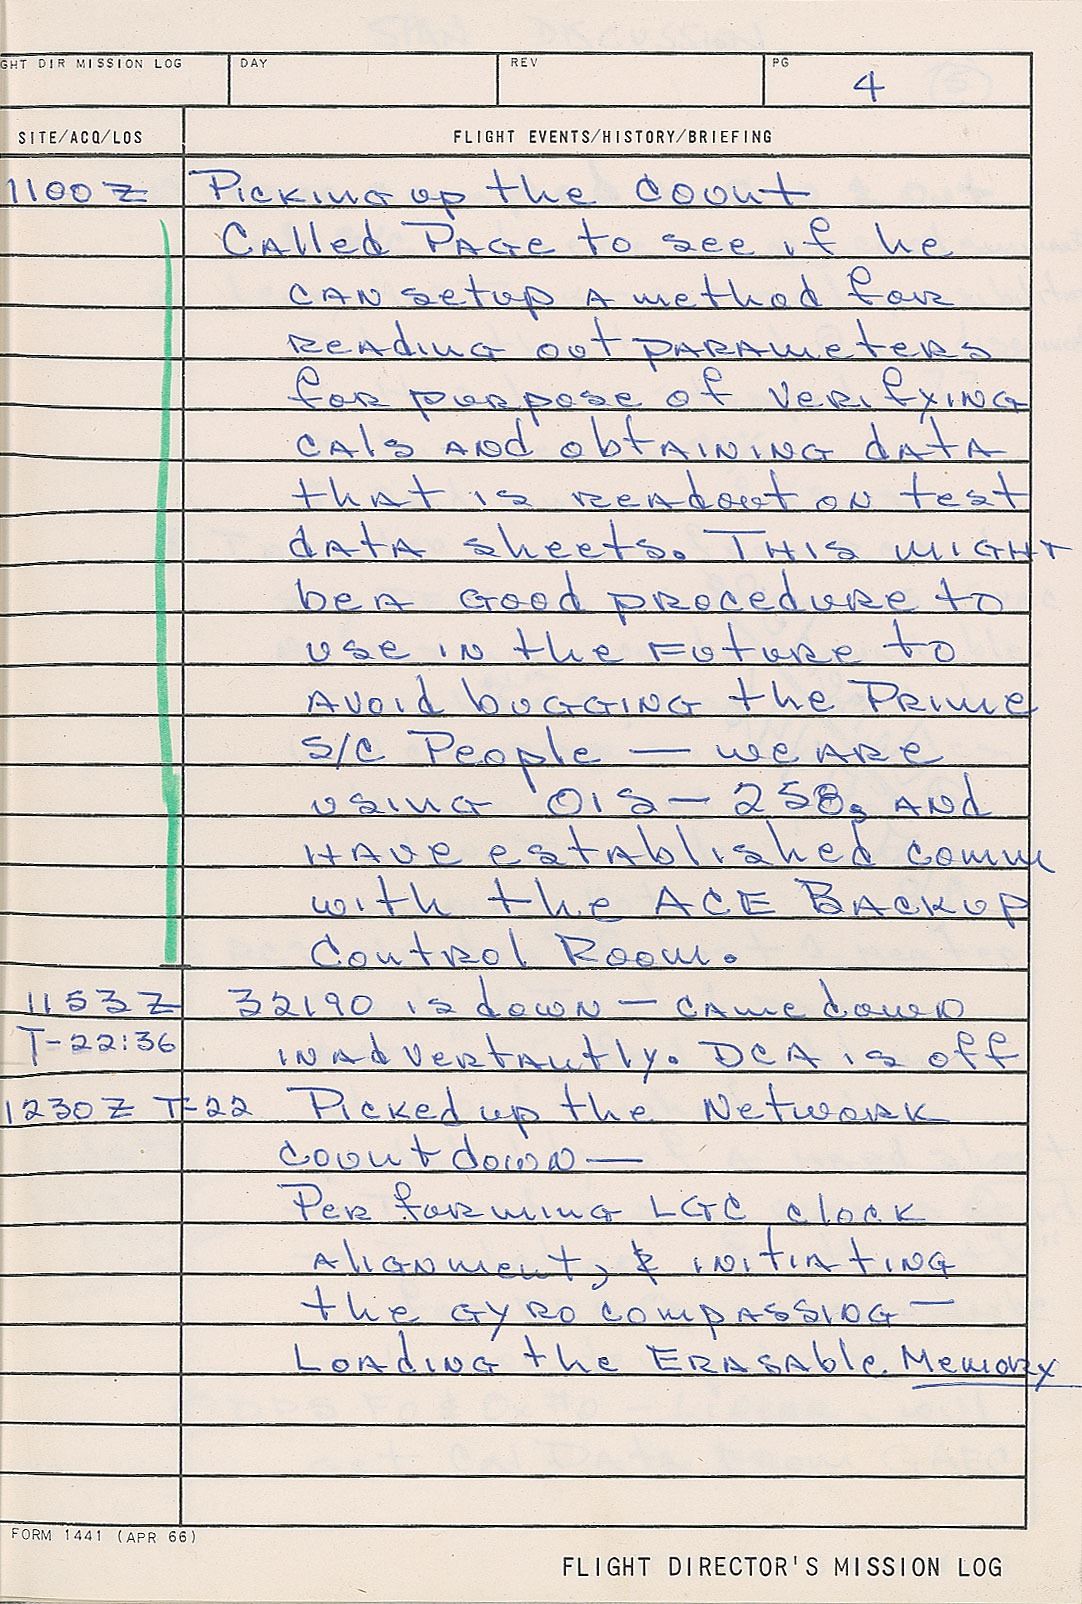 GHT DIR MISSION LOG DAY REV PG 4
SITE/ACQ/LOS FLIGHT EVENTS/HISTORY/BRIEFING
1100 Z Picking up the count
Called Page to see if he
can setup a method for
reading out parameters
for purpose of verifying
cals and obtaining data
that is readout on test
data sheets. This might
be a good procedure to
use in the future to
avoid bugging the Prime
S/C People — we are
using OIS - 258, and
have established comm
with the ACE Backup
Control Room.
1153 Z 32190 is down — came down
T-22:36 inadvertantly. DCA is off
1230 Z T-22 Picked up the Network
countdown —
Performing LGC clock
alignment, & initiating
the gyro compassing —
Loading the Erasable Memory
FORM 1441 (APR 66)
FLIGHT DIRECTOR'S MISSION LOG